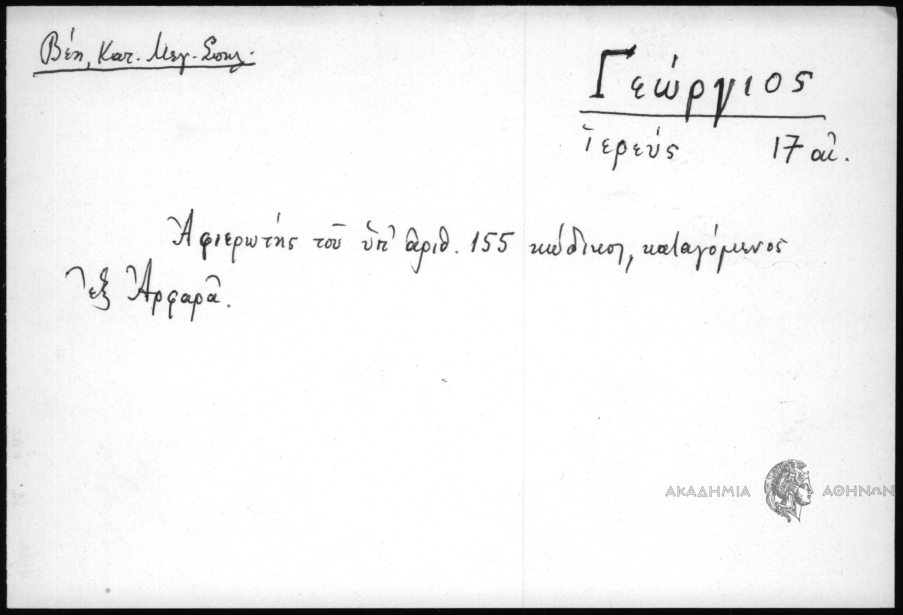 Βέη, Κατ. Μεγ. Σπηλ.
Γεώργιος
ἱερεύς 17 αἰ.
Ἀφιερωτής τοῦ ὑπ' ἀριθ. 155 κώδικος, καταγόμενος
ἐξ Ἀρφαρᾶ.
ΑΚΑΔΗΜΙΑ ΑΘΗΝΩΝ